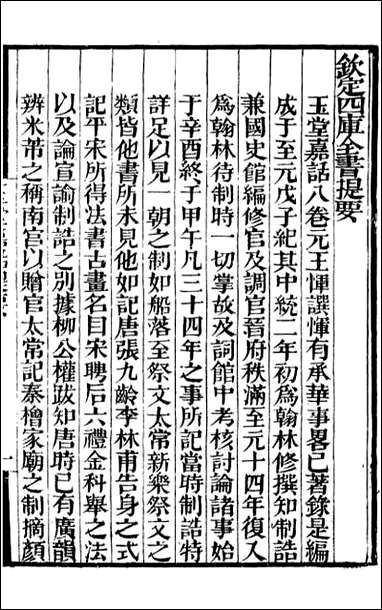 欽定四庫全書提要
玉堂嘉話八卷元王惲譔惲有承華事畧已著錄是編
成于至元戊子紀其中統二年初爲翰林修撰知制誥
兼國史館編修官及調官晉府秩滿至元十四年復入
爲翰林待制時一切掌故及詞館中考核討論諸事始
于辛酉終于甲午凡三十四年之事所記當時制誥特
詳足以見一朝之制如船落至祭文太常新樂祭文之
類皆他書所未見他如記唐張九齡李林甫告身之式
記平宋所得法書古畫名目宋聘后六禮金科舉之法
以及論宣諭制誥之別據柳公權跋知唐時已有廣韻
辨米芾之稱南宮以贈官太常記秦檜家廟之制摘顔